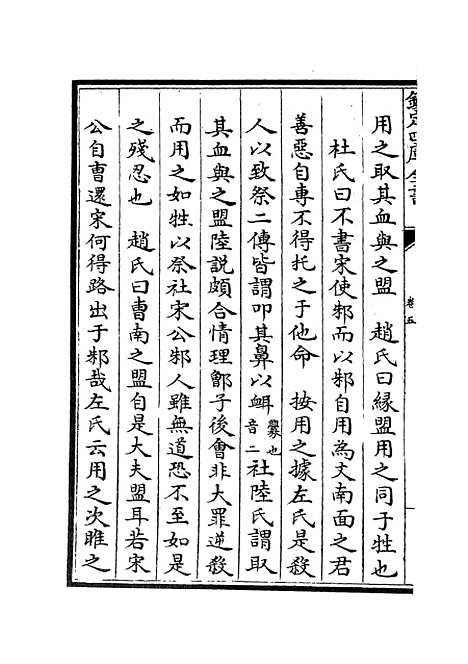 欽定四庫全書
卷五
用之取其血與之盟　趙氏曰緣盟用之同于牲也
杜氏曰不書宋使邾而以邾自用為文南面之君
善惡自專不得托之于他命　按用之據左氏是殺
人以致祭二傳皆謂叩其鼻以衈音二釁也社陸氏謂取
其血與之盟陸説頗合情理鄫子後會非大罪逆殺
而用之如牲以祭社宋公邾人雖無道恐不至如是
之殘忍也　趙氏曰曹南之盟自是大夫盟耳若宋
公自曹還宋何得路出于邾哉左氏云用之次睢之